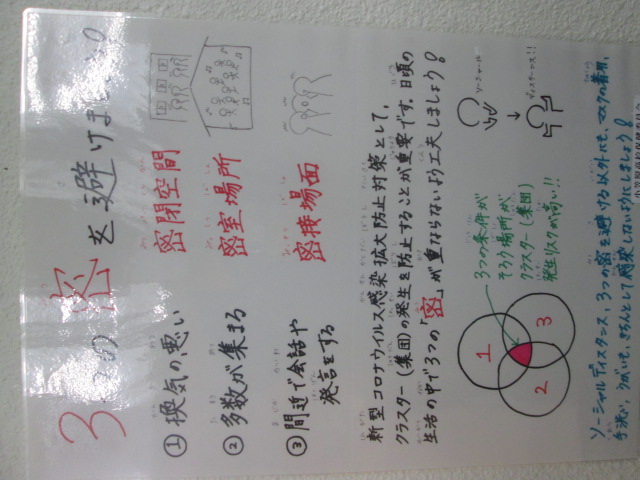 3つの密を避けましょう
① 換気の悪い 密閉空間
② 多数が集まる 密室場所
③ 間近で会話や 密接場面
発言をする
新型コロナウイルス感染拡大防止対策として、
クラスター(集団)の発生を防止することが重要です。日頃の
生活の中で3つの「密」が重ならないよう工夫しましょう!
3つの条件が
そろう場所が
クラスター(集団)
発生リスクが高い!!
1
2
3
ソーシャル
ディスタンス!!
ソーシャルディスタンス、3つの密を避ける以外にも、マスクの着用、
手洗い、うがい、きちんとして感染しないようにしましょう!